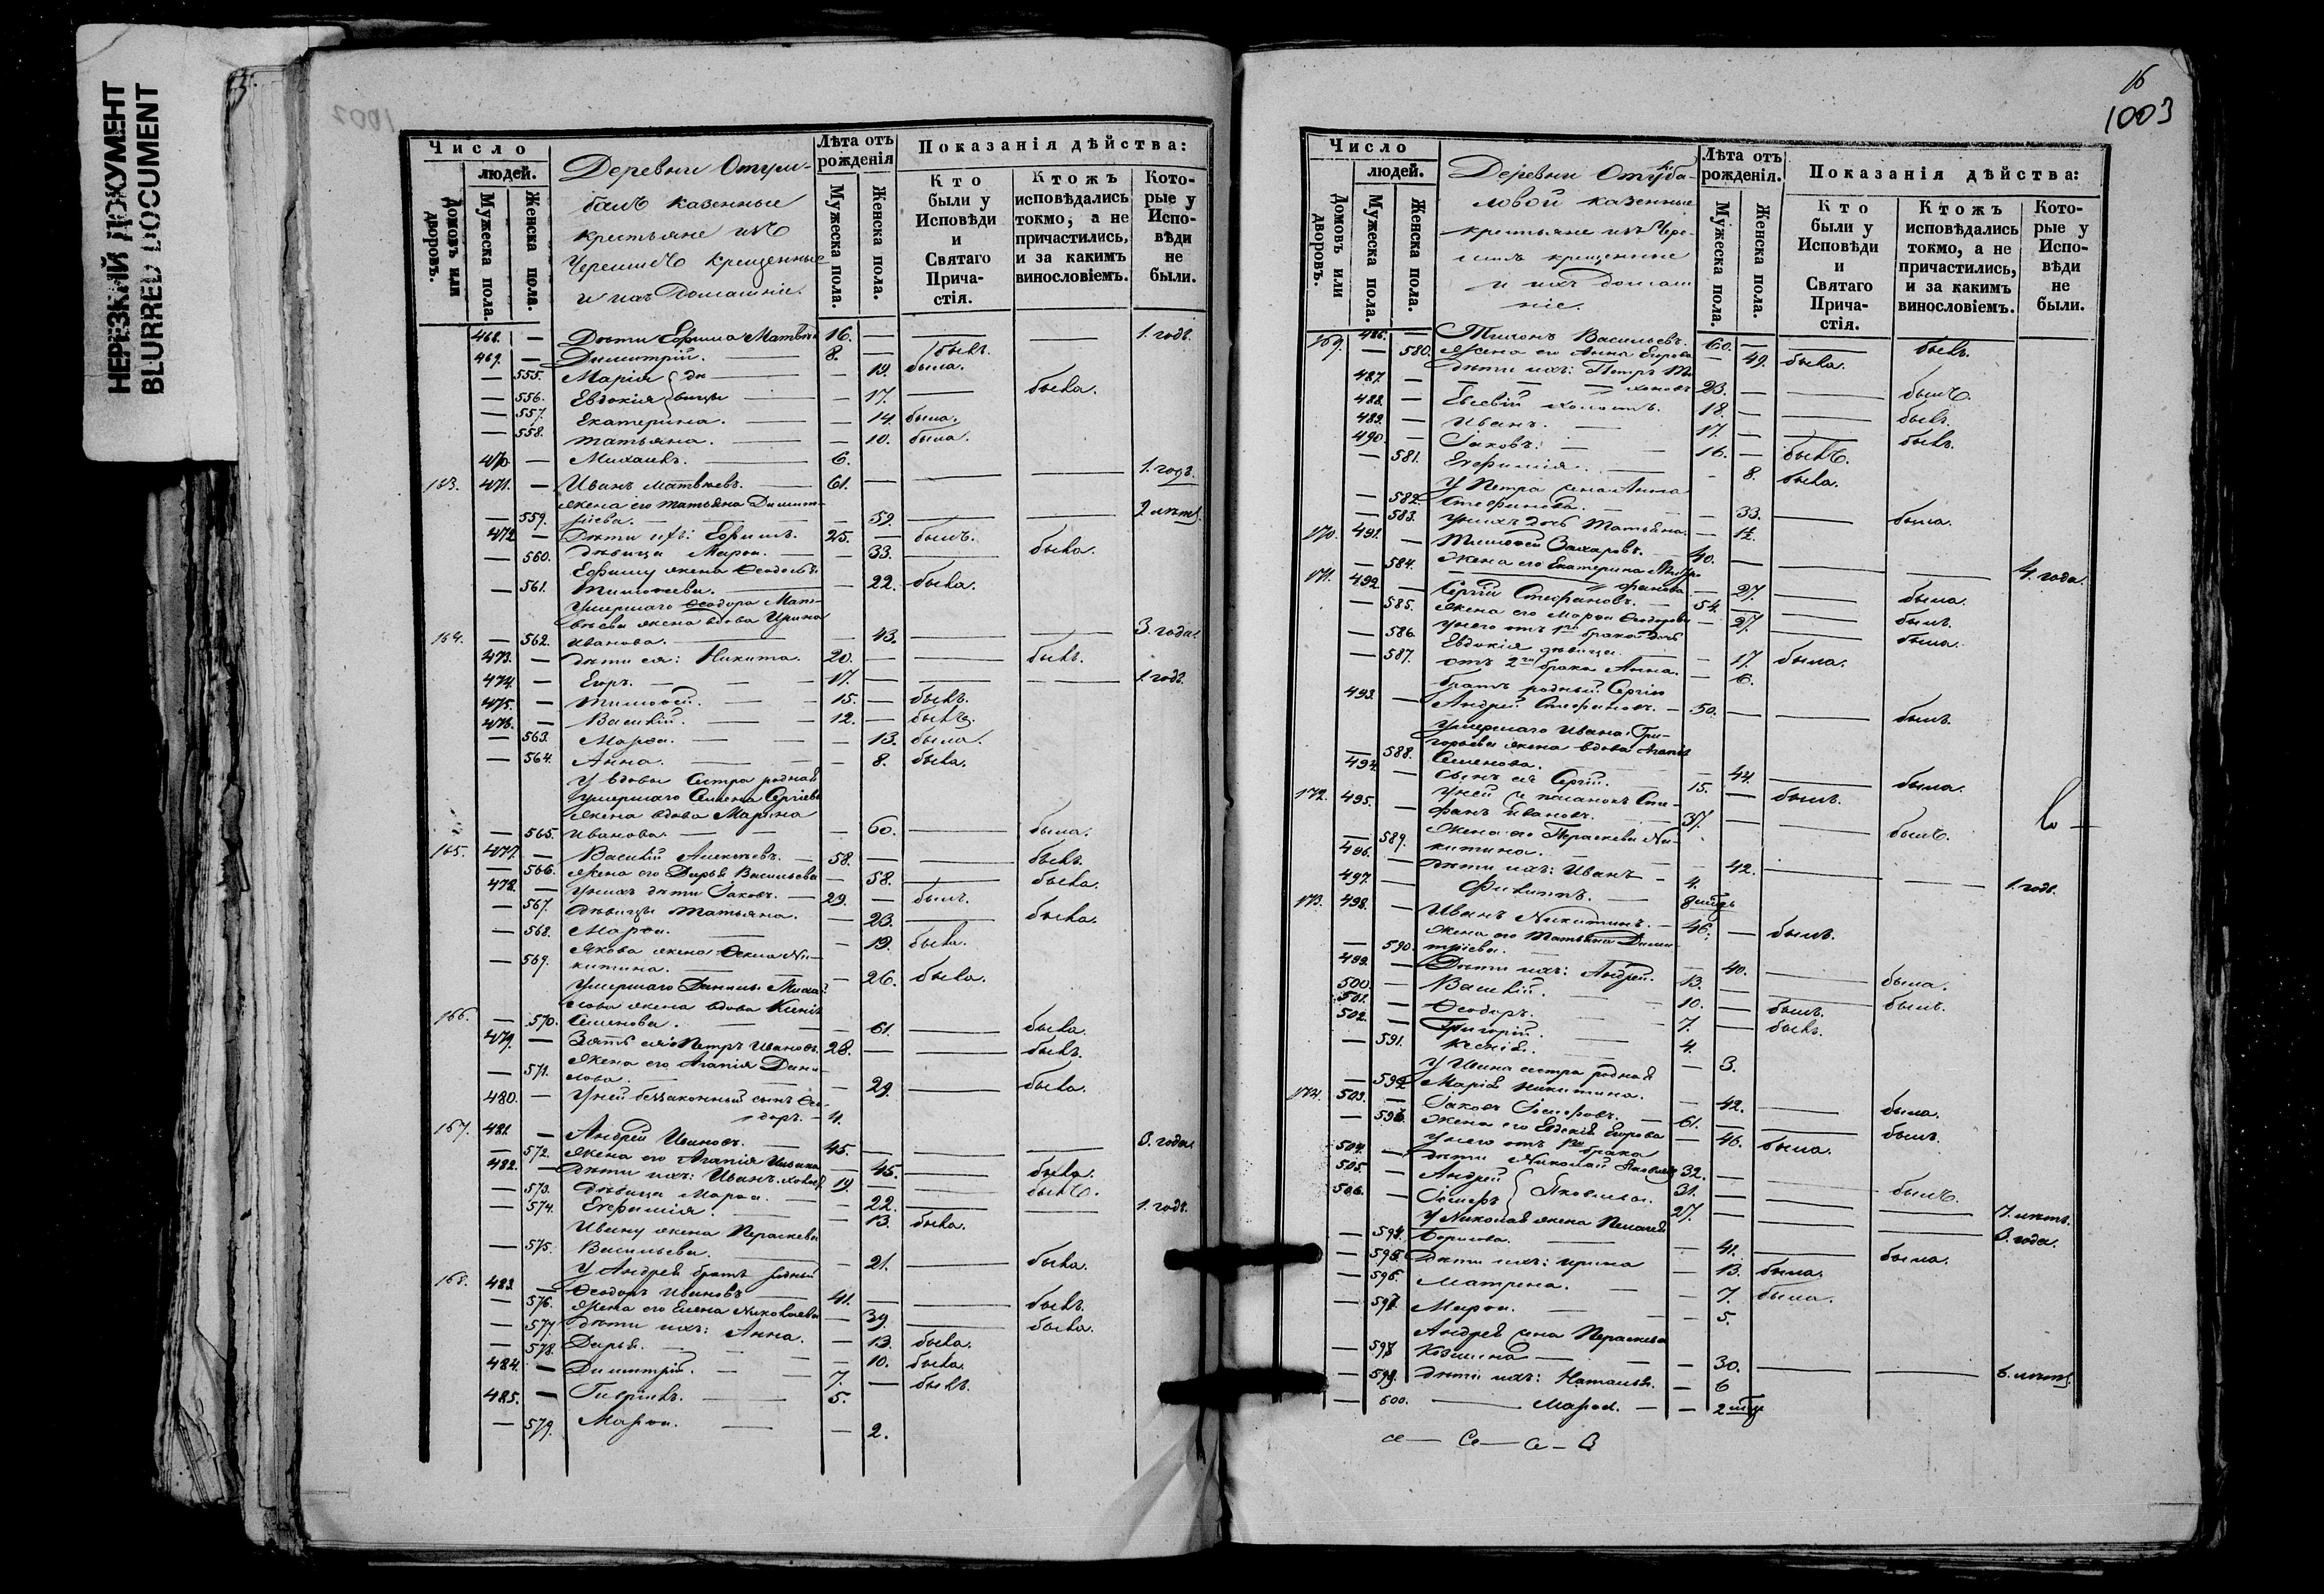 НЕРЕЗКИЙ ДОКУМЕНТ
BLURRED DOCUMENT
Число
людей.
Домовъ или дворовъ.
Мужеска пола.
Женска пола.
Деревни
казенные
крестьяне изъ
Черемисъ крещенные
и ихъ Домашніе.
Лѣта отъ рожденія
Мужеска пола.
Женска пола.
Показанія дѣйства:
Кто были у Исповѣди и Святаго Причастія.
Ктожъ исповѣдались токмо, а не причастились, и за какимъ винословіемъ.
Которые у Исповѣди не были.
468. — Дѣти Ефрима 16. — — — 1. годъ.
469. — Димитрій. — 8. — былъ.
— 555. Марія — 19. была.
— 556. Евдокія — 17. — была.
— 557. Екатерина. — 14. была.
— 558. Татьяна. — 10. была.
470. — Михаилъ. — 6.
163. 471. — Иванъ Матвѣевъ. — 61. — — — 1. годъ.
жена его Татьяна Димит-
— 559. ріева. — 59. — — 2 лѣтъ.
472. — Дѣти ихъ: Ефримъ. 25. — былъ.
— 560. дѣвица Марѳа. — 33. — была.
Ефриму жена
— 561. Тимоѳеева. — 22. была.
Умершаго Ѳеодора Мат-
вѣева жена вдова Ирина
164. — 562. Иванова. — 43. — — 3. года.
473. — дѣти ея: Никита. 20. — — былъ.
474. — Егоръ. — 17. — — — 1. годъ.
475. — Тимоѳей. — 15. — былъ.
476. — Василій. — 12. — былъ.
— 563. Марѳа. — 13. была.
— 564. Анна. — 8. была.
У вдовы сестра родная
умершаго Семена Сергіева
жена вдова Марина
— 565. Иванова. — 60. — была.
165. 477. — Василій Алексѣевъ. — 58. — — былъ.
— 566. жена его Дарья Васильева — 58. — была.
478. — у нихъ дѣти Іаковъ. — 29. — былъ.
— 567. дѣвицы Татьяна. — 23. — была.
— 568. Марѳа. — 19. была.
Якова жена Ѳекла Ни-
— 569. китина. — 26. была.
Умершаго Данилы
жена вдова Ксенія
166. — 570. Семенова. — 61. — была.
479. — Зять ея Петръ Ивановъ. 28. — — былъ.
жена его Агапія Дани-
— 571. лова. — 29. — была.
480. — У ней беззаконный сынъ Ѳео-
доръ. — 4.
167. 481. — Андрей Ивановъ. — 45. — — — 3. года.
— 572. жена его Агапія — 45. — была.
482. — дѣти ихъ: Иванъ. 19. — — былъ.
— 573. дѣвица Марѳа. — 22. — — 1. годъ.
— 574. Евфимія. — 13. была.
Ивану жена Параскева
— 575. Васильева. — 21. — была.
У Андрея братъ родный
168. 483. — Ѳеодоръ Ивановъ — 41. — — былъ.
— 576. жена его Елена Николаева — 39. — была.
— 577. дѣти ихъ: Анна. — 13. была.
— 578. Дарья. — 10. была.
484. — Димитрій. — 7. — былъ.
485. — Гавріилъ. — 5.
— 579. Марѳа. — 2.
16
1003
Число
людей.
Домовъ или дворовъ.
Мужеска пола.
Женска пола.
Деревни
казенные
крестьяне изъ Чере-
мисъ крещенные
и ихъ домаш
ніе.
Лѣта отъ рожденія.
Мужеска пола.
Женска пола.
Показанія дѣйства:
Кто были у Исповѣди и Святаго Причастія.
Ктожъ исповѣдались токмо, а не причастились, и за какимъ винословіемъ.
Которые у Исповѣди не были.
169. 486. — Тихонъ Васильевъ. 60. — — былъ.
— 580. жена его Анна Егорова — 49. была.
дѣти ихъ: Петръ Ти-
487. — хоновъ 23. — — былъ.
488. — Евсевій холостъ. 18. — — былъ.
489. — Иванъ. — 17. — — былъ.
490. — Іаковъ. — 16. — былъ.
— 581. Евфимія. — 8. была.
У Петра жена Анна
— 582. Стефанова. — 33. — была.
— 583. у нихъ дочь Татьяна. — 12.
170. 491. — Тимоѳей Захаровъ. — 40. — — — 4. года.
— 584. жена его Екатерина
— 27. — была.
171. 492. — Сергій Стефановъ. — 54. — — былъ.
— 585. жена его Марѳа Ѳеодорова — 27. — была.
у него отъ 1го брака дочь
— 586. Евдокія дѣвица. — 17. была.
— 587. отъ 2го брака Анна. — 6.
братъ родный Сергію
493. — Андрей Стефановъ. — 50. — — былъ.
Умершаго Ивана Гри-
горьева жена вдова
— 588. Семенова. — 44. — была.
494. — сынъ ея Сергій. — 15. — былъ.
у ней Сте-
172. 495. — фанъ Ивановъ. — 37. — — былъ.
жена его Параскева Ни-
— 589. китина. — 42. — — 1. годъ.
496. — дѣти ихъ: Иванъ — 4.
497. — Филиппъ. —
173. 498. — Иванъ Никитинъ. — 46. — былъ.
жена его Татьяна Дими-
— 590. тріева. — 40. — была.
499. — Дѣти ихъ: Андрей. 13. — — былъ.
500. — Василій. — 10. — былъ.
501. — Ѳеодоръ. — 7. — былъ.
502. — Григорій. — 4.
— 591. Ксенія. — 3.
У Ивана сестра родная
— 592 Марія Никитина. — 42. — была.
174. 503. — Іаковъ — 61. — — былъ.
— 593. жена его Евдокія Егорова — 46. была.
у него отъ 1го брака
504. — дѣти Николай Яковлевъ 32. — — былъ.
505. — Андрей Яковлевы. 31. — — — 7. лѣтъ.
506. — 27. — — — 3. года.
У Николая жена Пелагея
— 594. Борисова. — 41. — была.
— 595. Дѣти ихъ: Ирина — 13. была.
— 596. Матрена. — 7. была.
— 597. Марѳа. — 5.
Андрея жена Параскева
— 598. — 30. — — 6. лѣтъ.
— 599. дѣти ихъ: Наталья. — 6
— 600. — Марѳа. — 2